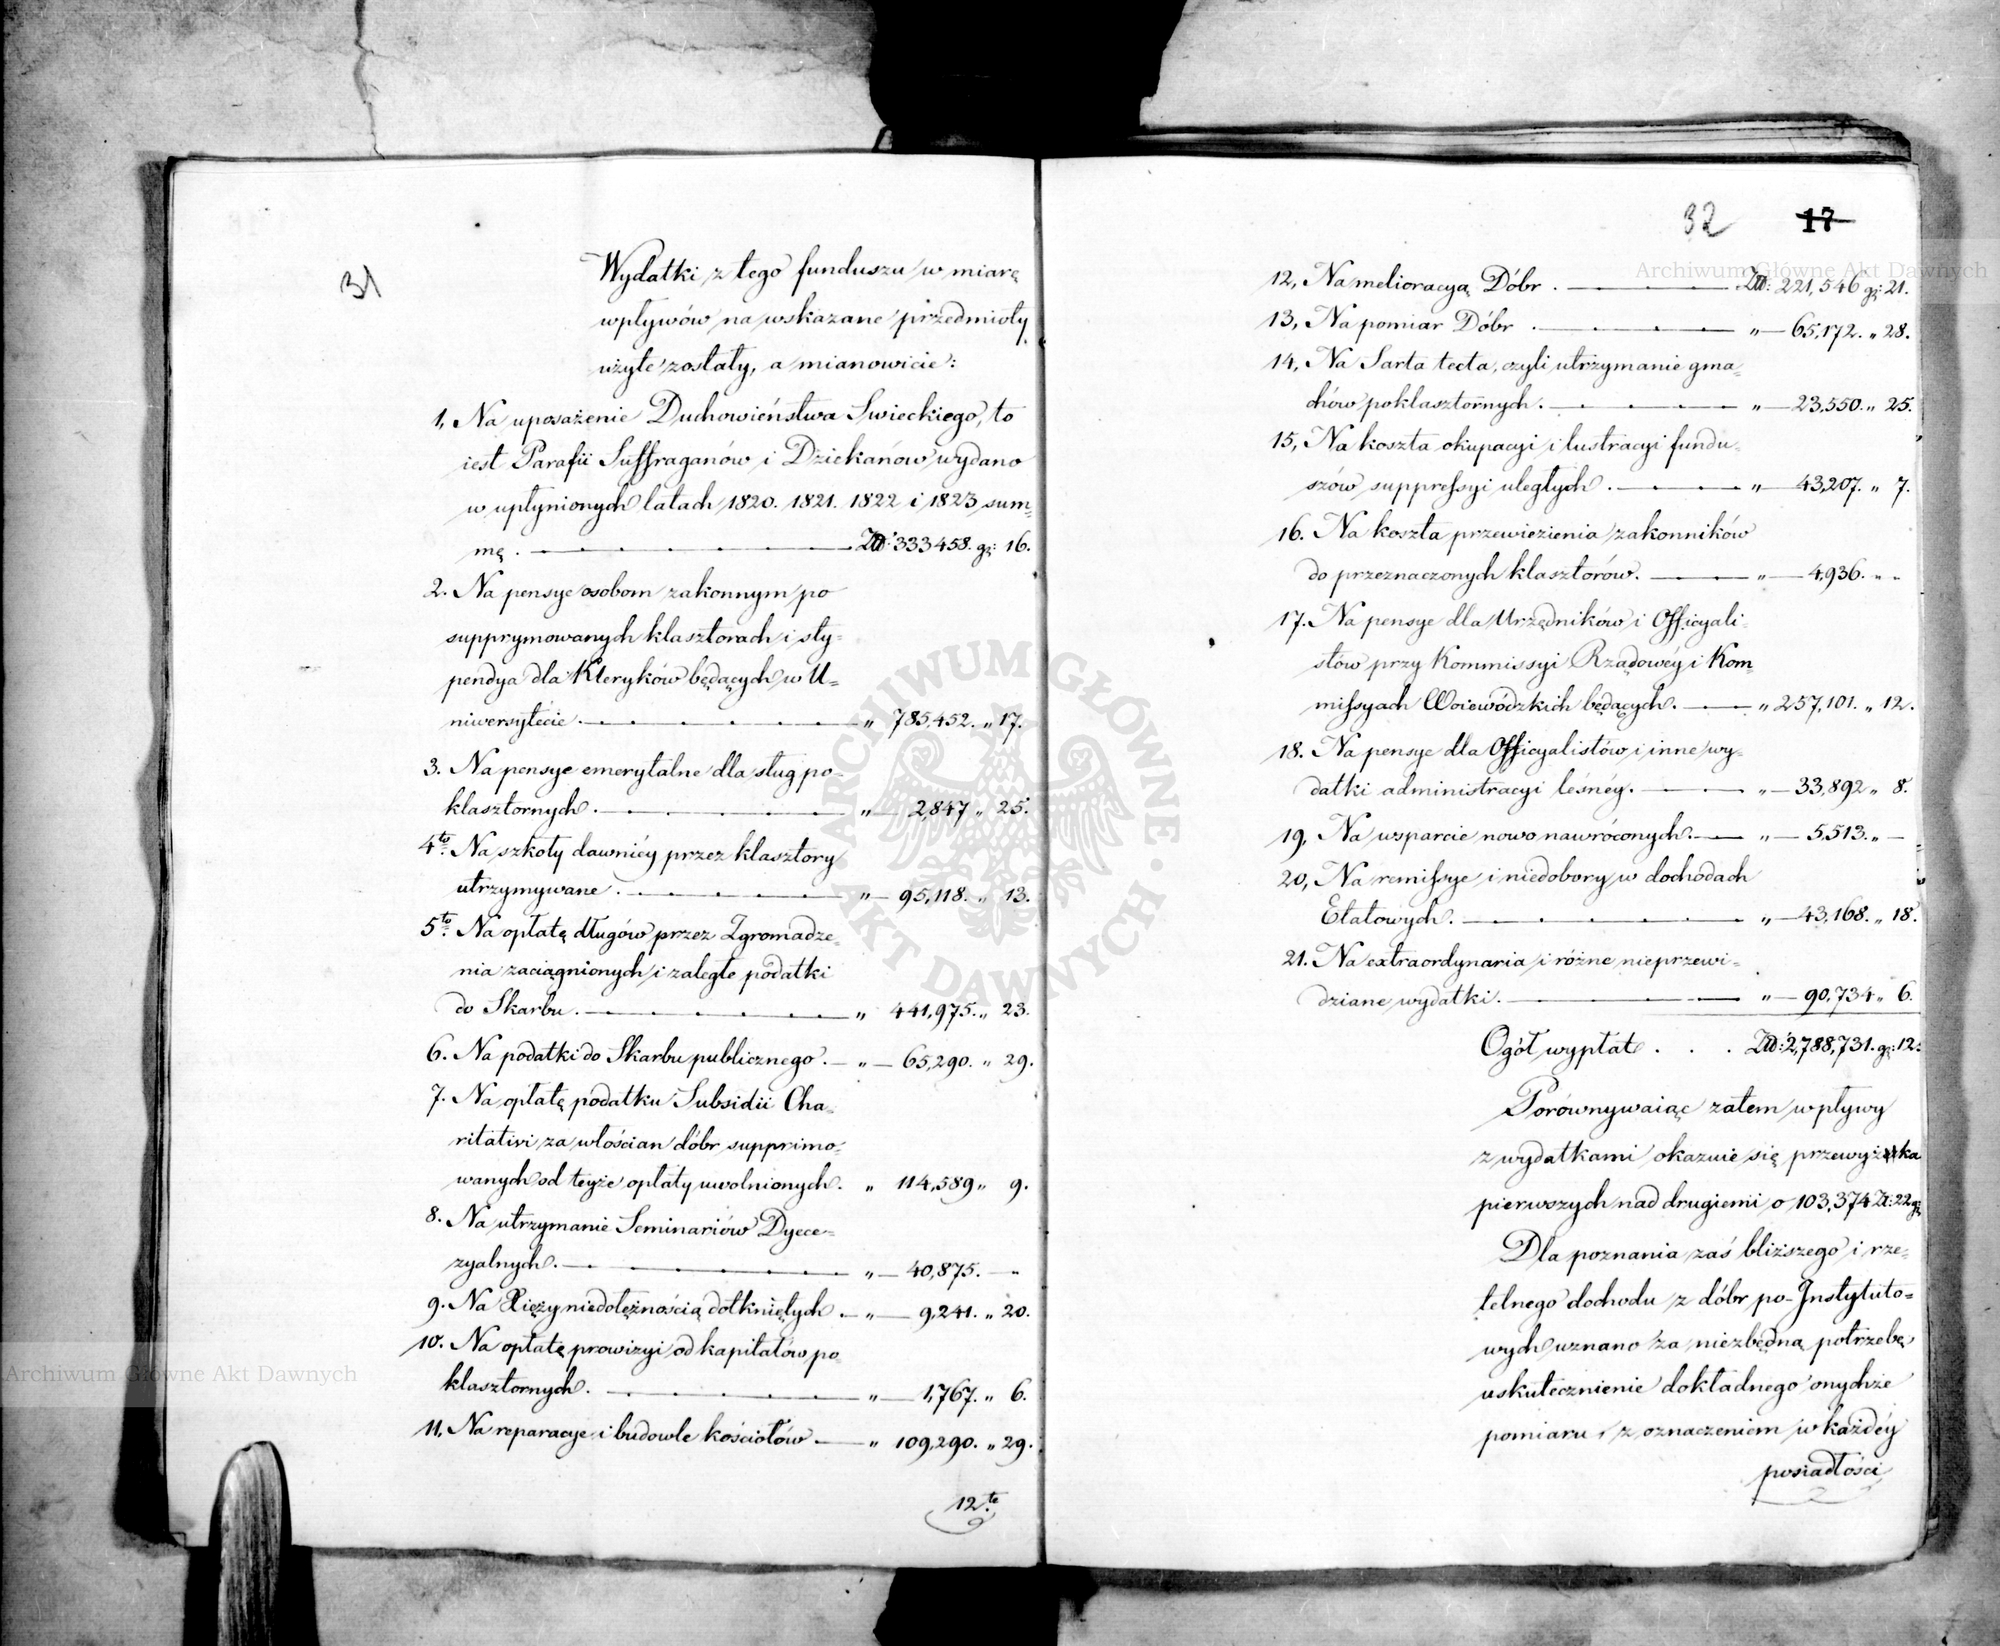 31
Wydatki z tego funduszu w miarę
wpływów na wskazane przedmioty
użyte zostały, a mianowicie:
1, Na uposażenie Duchowieństwa Swieckiego, to
iest Parafii Suffraganów i Dziekanów wydano
w upłynionych latach 1820. 1821. 1822 i 1823 sum=
mę . Zł: 333458. gr: 16.
2. Na pensye osobom zakonnym po
supprymowanych klasztorach i sty=
pendya dla Kleryków będących w U=
niwersytecie . „ 785,452. „ 17.
3. Na pensye emerytalne dla sług po=
klasztornych . „ 2,847 „ 25.
4to. Na szkoły dawniéy przez klasztory
utrzymywane . „ 95,118. „ 13.
5to. Na opłatę długów przez Zgromadze=
nia zaciągnionych i zaległe podatki
do Skarbu . „ 441,975. „ 23.
6. Na podatki do Skarbu publicznego . „ 65,290. „ 29.
7. Na opłatę podatku Subsidii Cha=
ritativi za włościan dóbr supprimo=
wanych od teyże opłaty uwolnionych . „ 114,589 „ 9.
8. Na utrzymanie Seminariów Dyece=
zyalnych . „ 40,875. —
9. Na Xięży niedołężnością dotkniętych . „ 9,241. „ 20.
10. Na opłatę prowizyi od kapitałów po=
klasztornych . „ 1,767. „ 6.
11, Na reparacye i budowle kościołów — „ 109,290. „ 29.
12te
32 17
12, Na melioracyą Dóbr . Zł: 221,546 gr: 21.
13, Na pomiar Dóbr . „ 65,172. „ 28.
14, Na Sarta tecta, czyli utrzymanie gma=
chów poklasztornych . „ 23,550. „ 25.
15, Na koszta okupacyi i lustracyi fundu=
szów suppressyi uległych . „ 43,207. „ 7.
16. Na koszta przewiezienia zakonników
do przeznaczonych klasztorów. „ 4,936. „ „
17. Na pensye dla Urzędników i Officyali=
stów przy Kommissyi Rządowéy i Kom
missyach Woiewódzkich będących . „ 257,101. „ 12.
18. Na pensye dla Officyalistów i inne wy=
datki administracyi leśnéy . „ 33,892 „ 8.
19, Na wsparcie nowo nawróconych. „ 5,513. „ —
20, Na remissye i niedobory w dochodach
Etatowych . „ 43,168. „ 18.
21. Na extraordynaria i różne nieprzewi=
dziane wydatki . „ 90,734 „ 6.
Ogół wypłat . . . Zł: 2,788,731. gr: 12.
Porównywaiąc zatem wpływy
z wydatkami okazuie się przewyżka
pierwszych nad drugiemi o 103,374 Zł: 22 gr
Dla poznania zaś bliższego i rze=
telnego dochodu z dóbr po-Instytuto=
wych uznano za niezbędną potrzebę
uskutecznienie dokładnego onychże
pomiaru, z oznaczeniem w każdéy
posiadłości
Archiwum Główne Akt Dawnych
ARCHIWUM GŁÓWNE · AKT DAWNYCH ·
Archiwum Główne Akt Dawnych